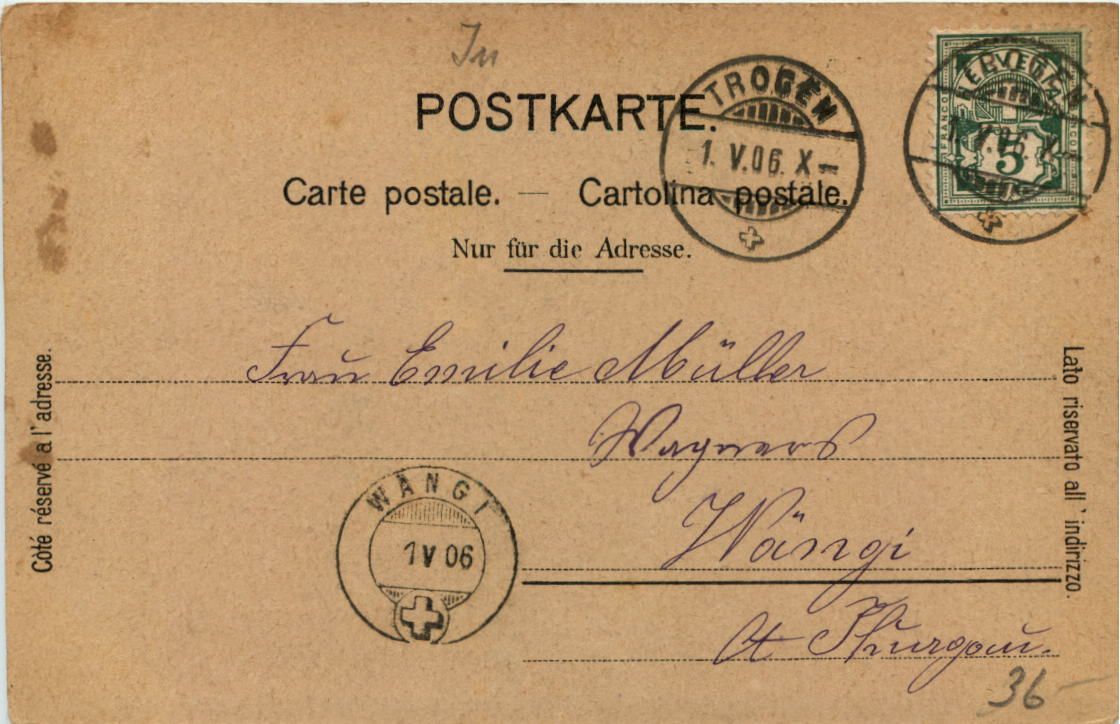 In
POSTKARTE.
Carte postale. — Cartolina postale.
Nur für die Adresse.
TROGEN
1. V. 06. X–
HELVETIA
FRANCO
FRANCO
5
1. V. 06. X–
Côté réservé à l'adresse.
Lato riservato all'indirizzo.
Frau Emilie Müller
Wagners
Wängi
Ct Thurgau.
WÄNGI
1 V 06
36–